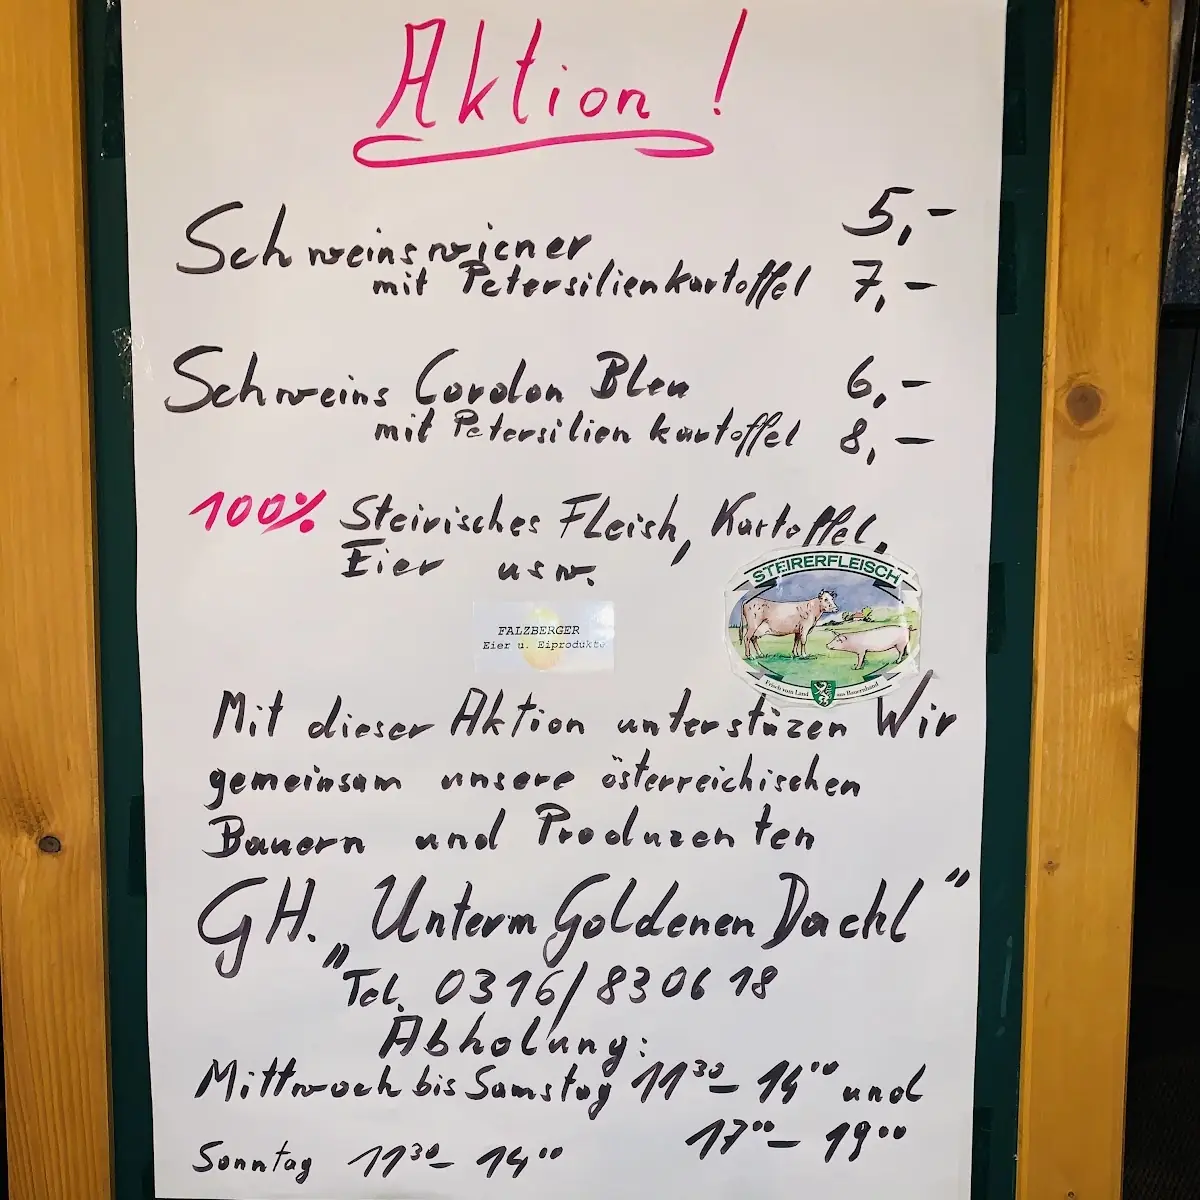 Aktion!
Schweinswiener 5,-
mit Petersilienkartoffel 7,-
Schweins Cordon Bleu 6,-
mit Petersilienkartoffel 8,-
100% Steirisches Fleish, Kartoffel,
Eier usw.
STEIRERFLEISCH
FALZBERGER
Eier u. Eiprodukte
Frisch vom Land aus Bauernhand
Mit dieser Aktion unterstüzen Wir
gemeinsam unsere österreichischen
Bauern und Produzenten
GH. „Unterm Goldenen Dachl"
Tel. 0316/830618
Abholung:
Mittwoch bis Samstag 11³⁰- 14⁰⁰ und
17⁰⁰- 19⁰⁰
Sonntag 11³⁰- 14⁰⁰